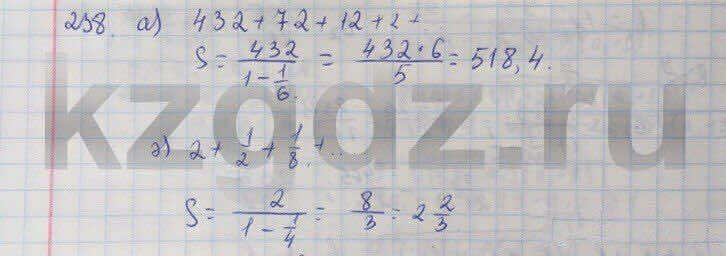 238. а) 432 + 72 + 12 + 2 + ..
S = 432 / (1 - 1/6) = 432 · 6 / 5 = 518,4.
kzgdz.ru
г) 2 + 1/2 + 1/8 + ...
S = 2 / (1 - 1/4) = 8/3 = 2 2/3